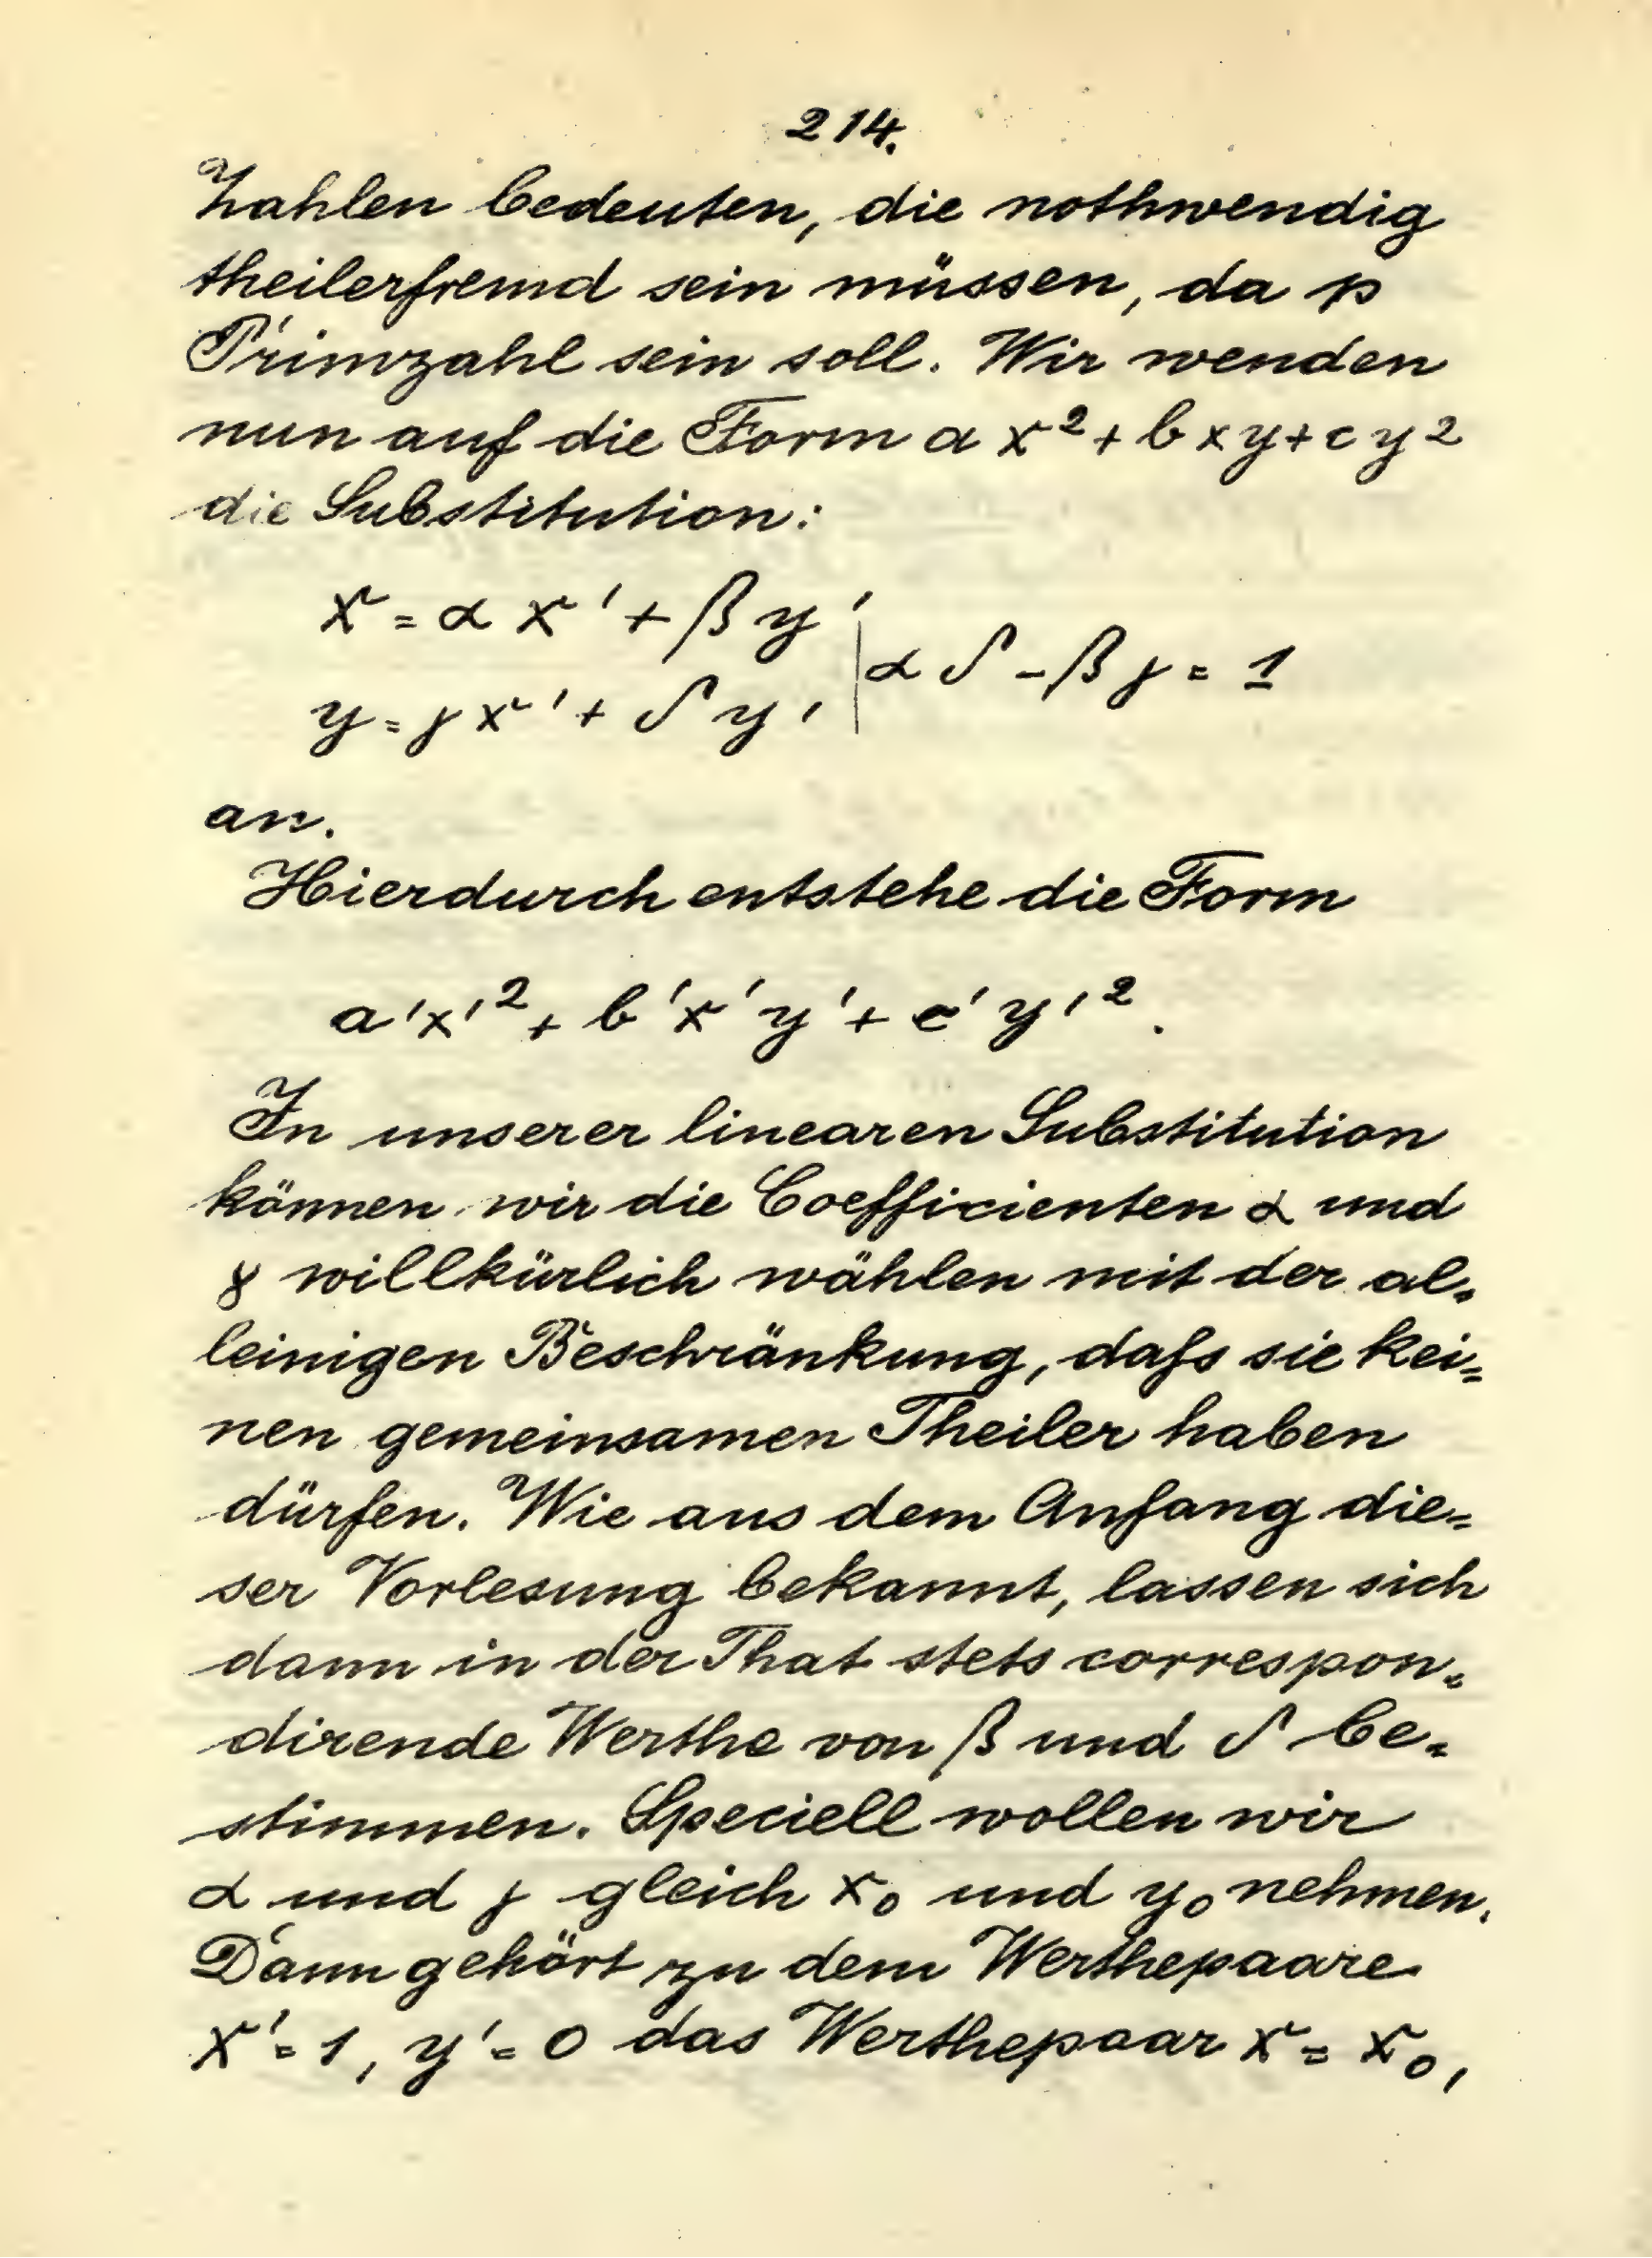 214.
Zahlen bedeuten, die nothwendig
theilerfremd sein müssen, da p
Primzahl sein soll. Wir wenden
nun auf die Form a x² + b x y + c y²
die Substitution:
x = α x' + β y'
y = γ x' + δ y' | α δ - β γ = 1
an.
Hierdurch entstehe die Form
a'x'² + b'x'y' + c'y'².
In unserer linearen Substitution
können wir die Coefficienten α und
γ willkürlich wählen mit der al=
leinigen Beschränkung, daſs sie kei=
nen gemeinsamen Theiler haben
dürfen. Wie aus dem Anfang die=
ser Vorlesung bekannt, lassen sich
dann in der That stets correspon=
dirende Werthe von β und δ be=
stimmen. Speciell wollen wir
α und γ gleich x₀ und y₀ nehmen.
Dann gehört zu dem Werthepaare
x' = 1, y' = 0 das Werthepaar x = x₀,